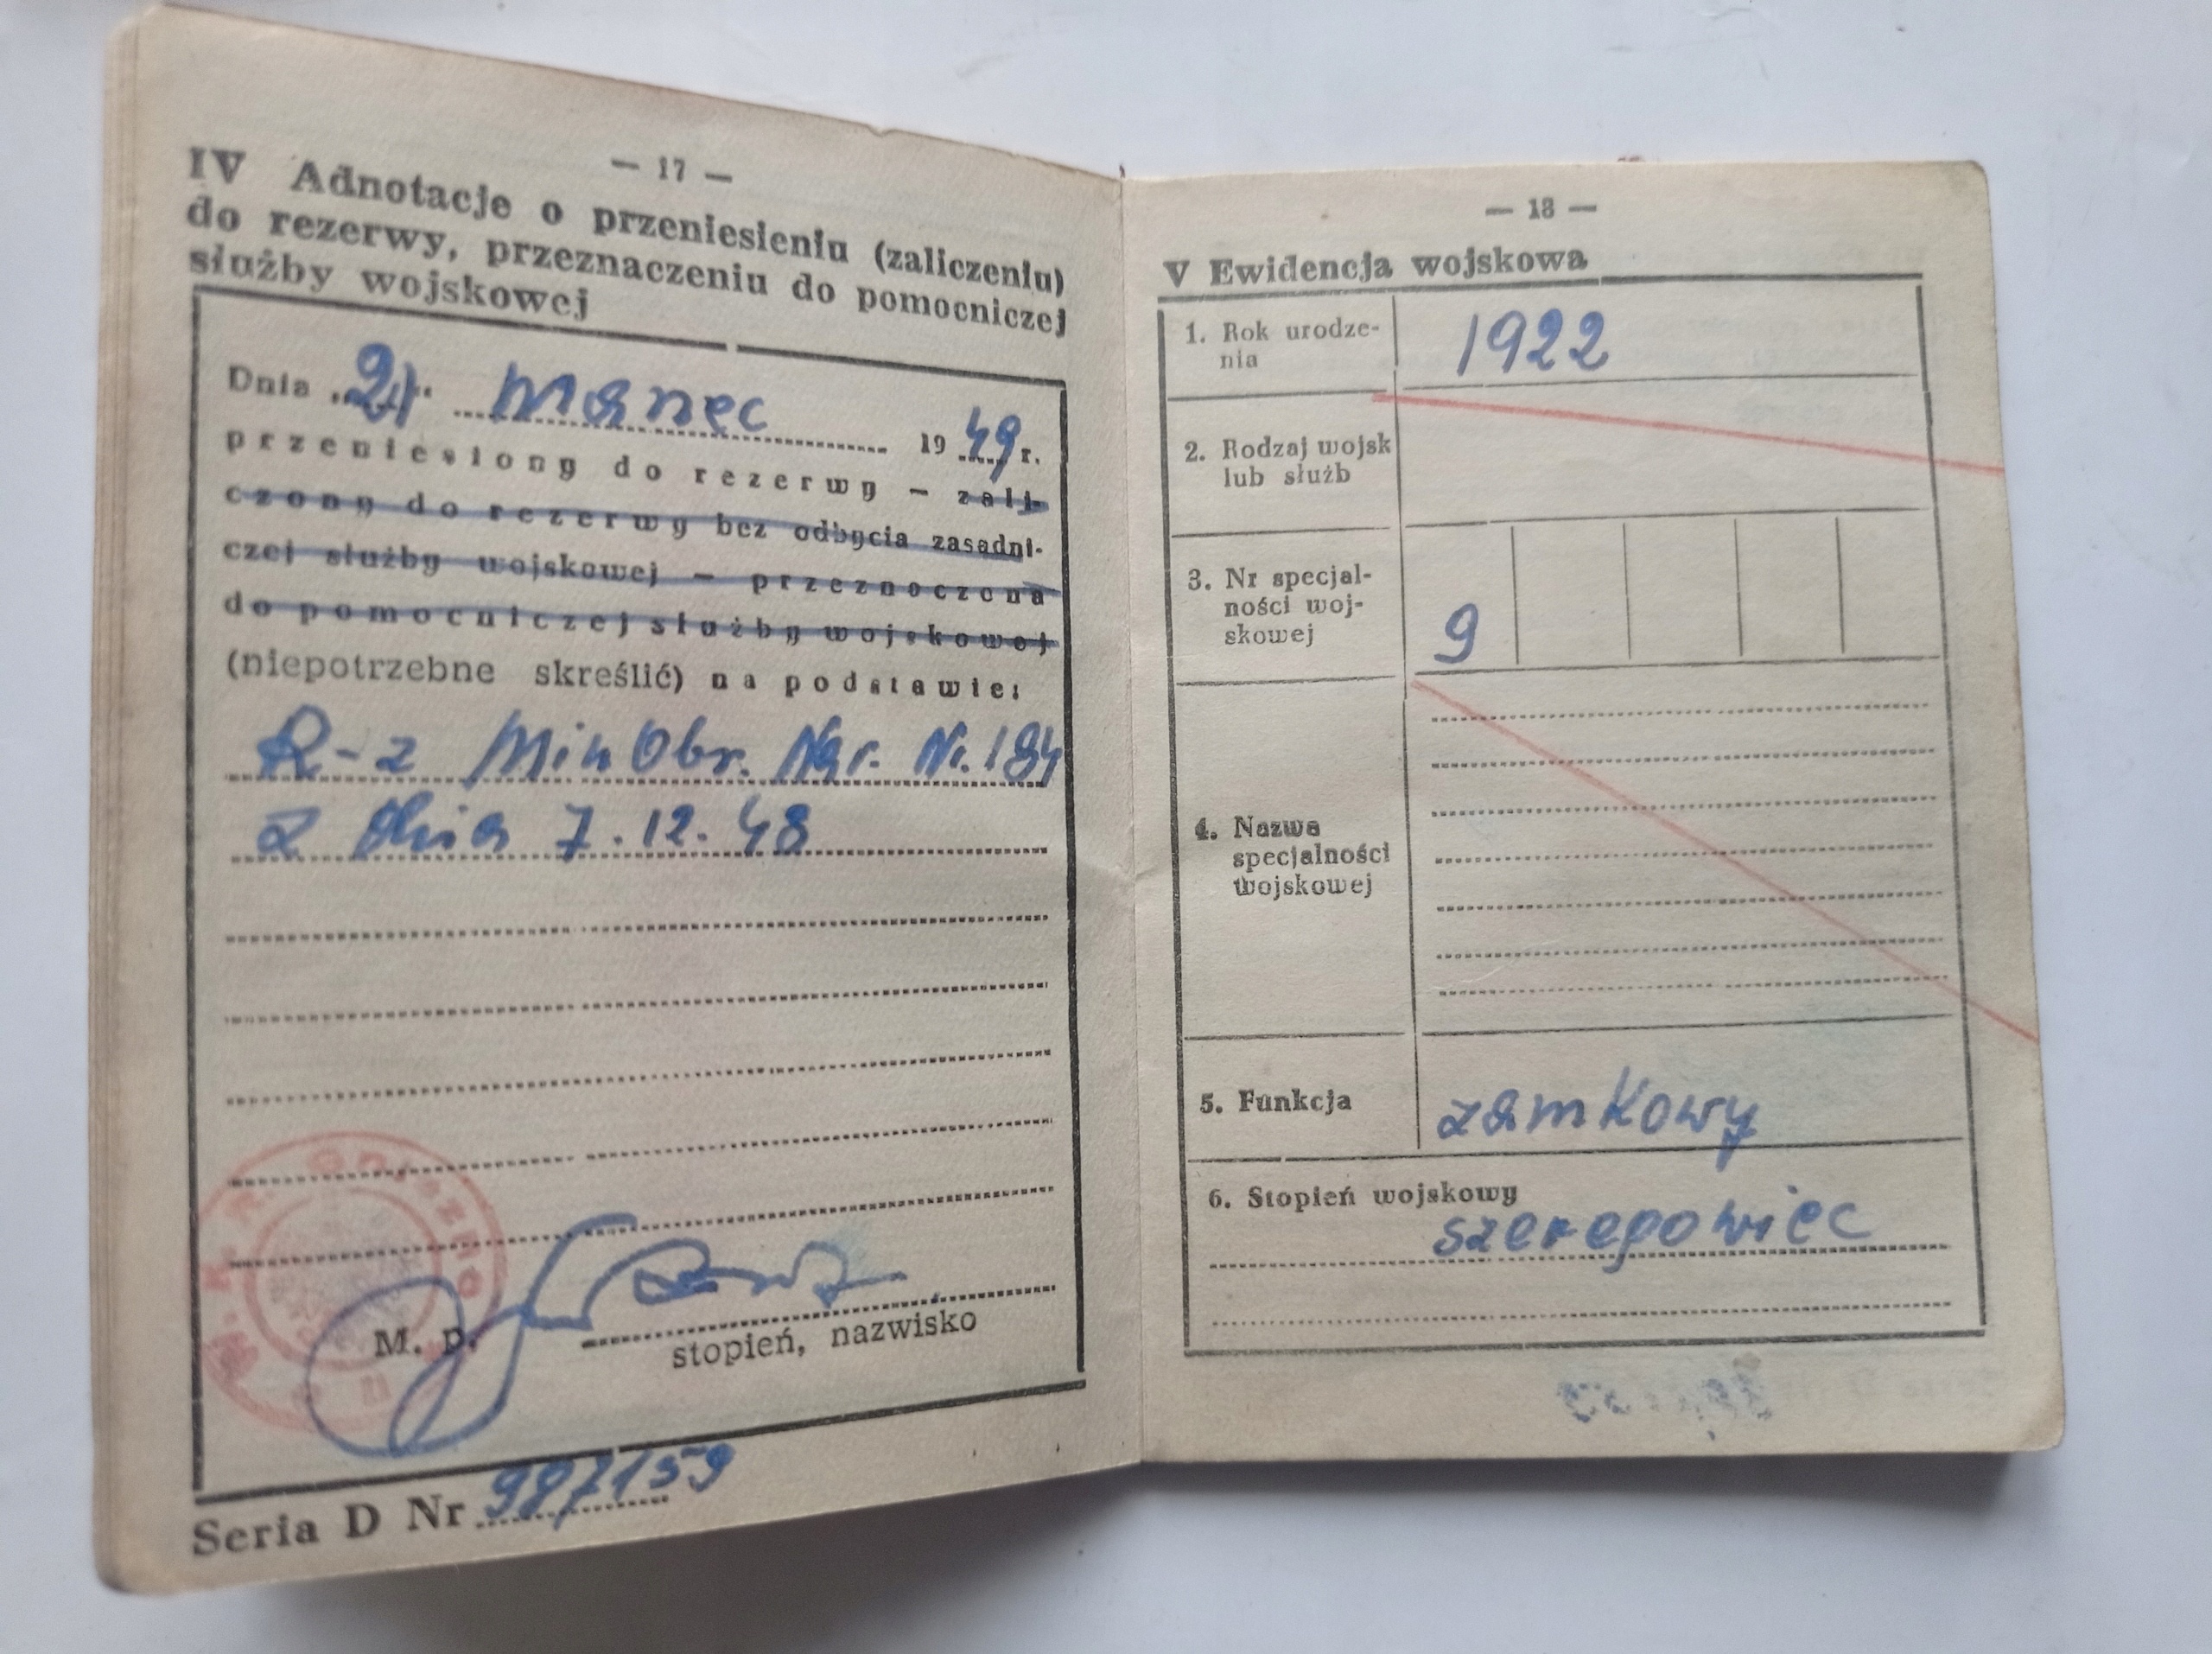 — 17 —
IV Adnotacje o przeniesieniu (zaliczeniu)
do rezerwy, przeznaczeniu do pomocniczej
służby wojskowej
Dnia „21" marzec 1949 r.
przeniesiony do rezerwy – zali-
czony do rezerwy bez odbycia zasadni-
czej służby wojskowej – przeznaczona
do pomocniczej służby wojskowej
(niepotrzebne skreślić) na podstawie:
R-z Min Obr. Nar. Nr. 184
z dnia 7.12.48
M. p.
stopień, nazwisko
Seria D Nr 987159
— 18 —
V Ewidencja wojskowa
1. Rok urodze-
nia
1922
2. Rodzaj wojsk
lub służb
3. Nr specjal-
ności woj-
skowej
9
4. Nazwa
specjalności
wojskowej
5. Funkcja
zamkowy
6. Stopień wojskowy
szeregowiec